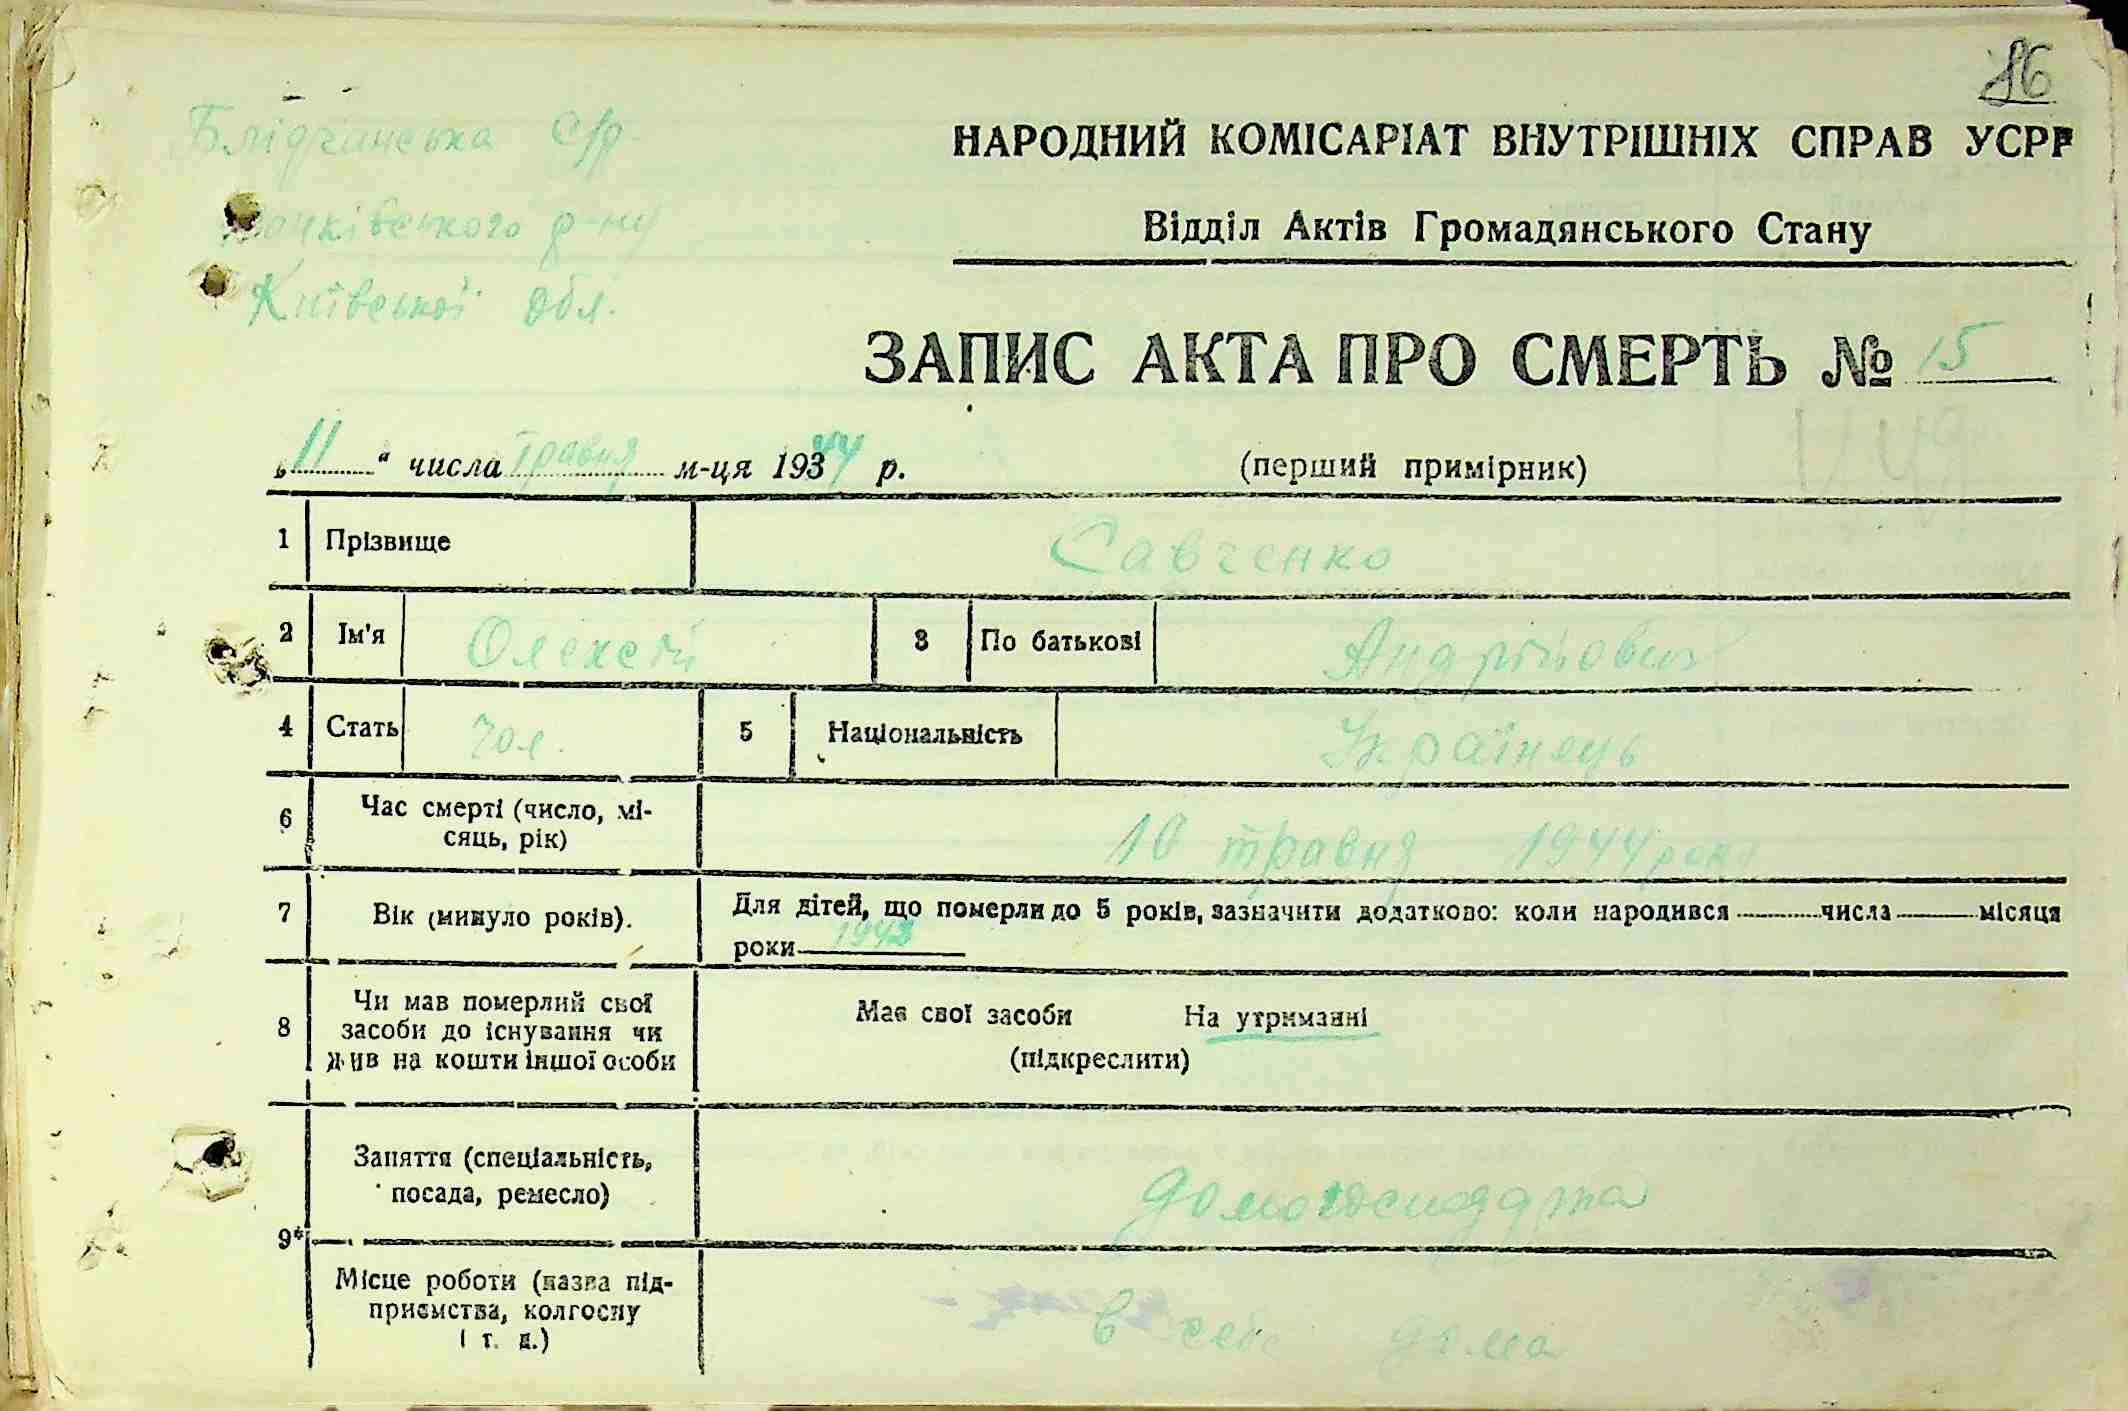 86
Блідчанська с/р.
Іванківського р-ну
Київської обл.
НАРОДНИЙ КОМІСАРІАТ ВНУТРІШНІХ СПРАВ УСРР
Відділ Актів Громадянського Стану
ЗАПИС АКТА ПРО СМЕРТЬ № 15
„11“ числа травня м-ця 1944 р. (перший примірник)
1 Прізвище Савченко
2 Ім'я Олексій 3 По батькові Андрійович
4 Стать чол. 5 Національність Українець
6 Час смерті (число, мі-
сяць, рік) 10 травня 1944 року
7 Вік (минуло років). Для дітей, що померли до 5 років, зазначити додатково: коли народився числа місяця
роки 1943
8 Чи мав померлий свої
засоби до існування чи
жив на кошти іншої особи
Має свої засоби На утриманні
(підкреслити)
9* Заняття (спеціальність,
посада, ремесло)
Місце роботи (назва під-
приємства, колгоспу
і т. д.)
в себе дома